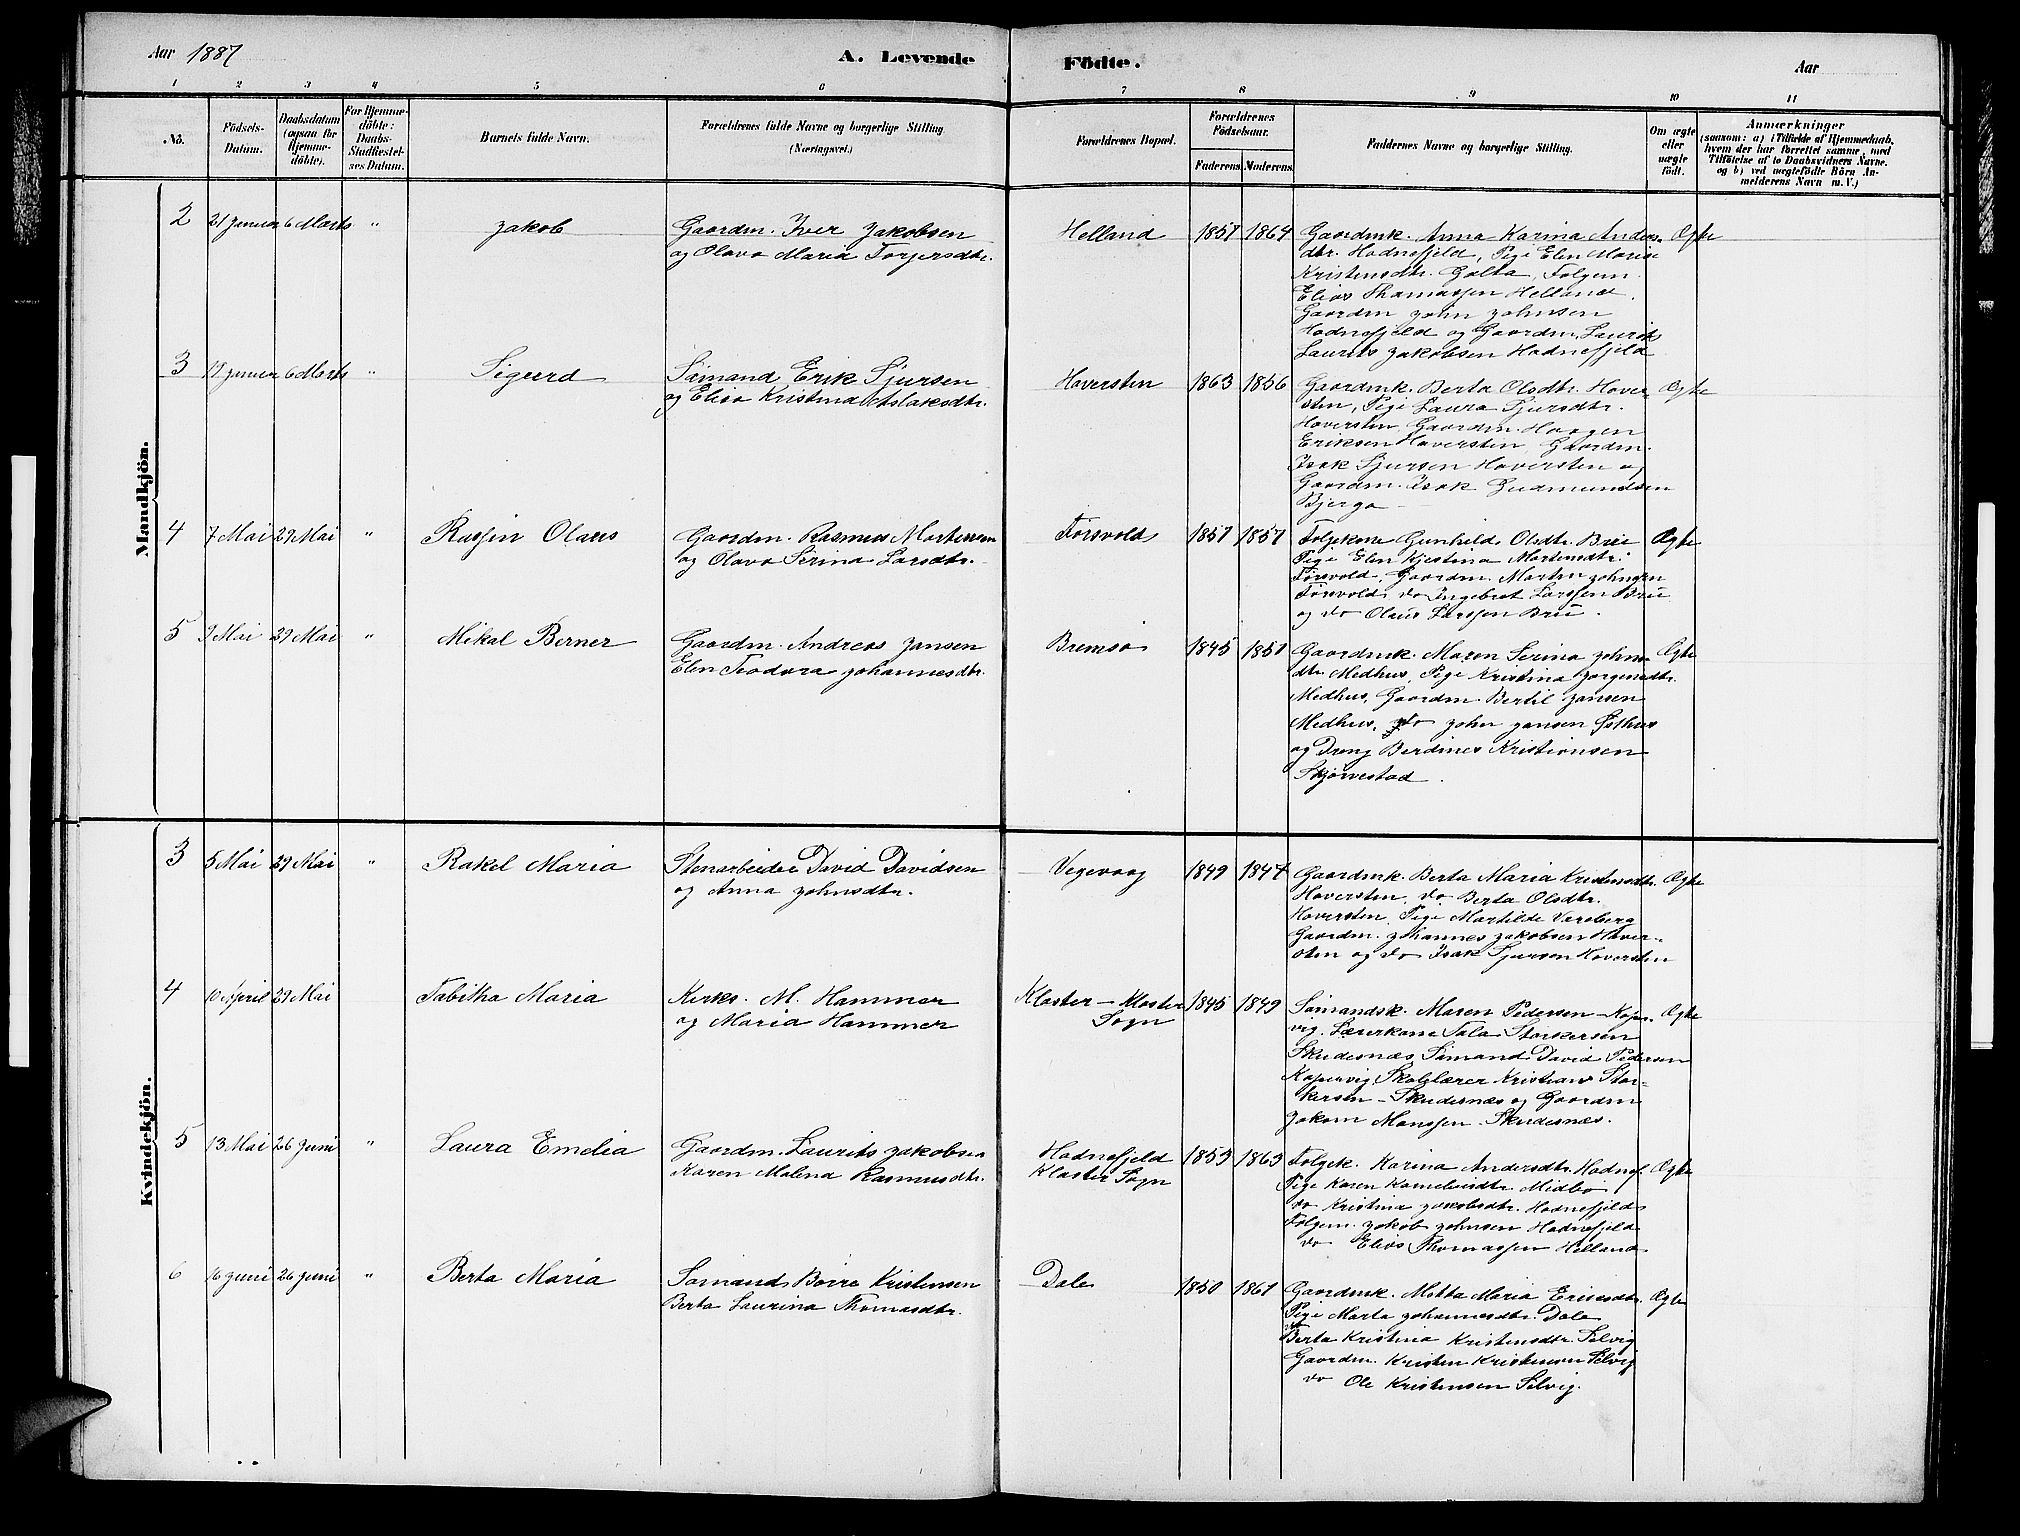 Aar 1887 A. Levende Födte. Aar
1 2 3 4 5 6 7 8 9 10 11
No.
Födsels-Datum.
Daabsdatum (ogsaa for Hjemme-döbte).
For Hjemme-döbte: Daabs-Stadfæstel-ses Datum.
Barnets fulde Navn.
Forældrenes fulde Navne og borgerlige Stilling (Næringsvei.)
Forældrenes Bopæl.
Forældrenes Födselsaar.
Faderens. Moderens.
Faddernes Navne og borgerlige Stilling.
Om ægte eller uægte födt.
Anmærkninger
(saasom: a) i Tilfælde af Hjemmedaab,
hvem der har forrettet samme, med
Tilföielse af to Daabsvidners Navne.
og b) ved uægtefödte Börn An-
melderens Navn m.V.)
Mandkjön.
2 21 Januar 6 Marts " Jakob
Gaardm. Iver Jakobsen
og Olava Maria Torjersdtr.
Helland 1857 1864
Gaardmk. Anna Karina Anders-
dtr. Hodnefjeld, Pige Elen Maria
Kristensdtr. Galta, Folgem.
Elias Thomassen Helland,
Gaardm John Johnsen
Hodnefjeld og Gaardm. Laurits
Laurits Jakobsen Hodnefjeld
Ægte
3 17 Januar 6 Marts " Sigurd
Sömand Erik Sjursen
og Elisa Kristina Aslaksdtr.
Haversten 1863 1856
Gaardmk. Berta Olsdtr. Haver
sten, Pige Laura Sjursdtr.
Haversten, Gaardm. Haagen
Eriksen Haversten, Gaardm.
Isak Sjursen Haversten og
Gaardm. Isak Gudmundsen
Bjerga
Ægte
4 7 Mai 29 Mai " Rasjin Olaus
Gaardm. Rasmus Mortensen
og Olava Serina Larsdtr.
Försvold 1857 1857
Folgekone Gunhild Olsdtr. Bru
Pige Elen Kjestina Mortensdtr.
Försvold, Gaardm. Morten Johnsen
Försvold, do Ingebret Larssen Bru
og do Olaus Larssen Bru.
Ægte
5 9 Mai 29 Mai " Mikal Berner
Gaardm. Andreas Jansen
Elen Teodora Johannesdtr.
Bremsö 1845 1851
Gaardmk. Maren Serina Johns
dtr. Medhus, Pige Kristina Jorgensdtr.
Medhus, Gaardm Bertil Jansen
Medhus, do John Jansen
og Dreng Berdines Kristiansen
Skjörvestad.
Ægte
Kvindekjön.
3 5 Mai 29 Mai " Rakel Maria
Stenarbeider David Davidsen
og Anna Johnsdtr.
Vegevaag 1849 1847
Gaardmk. Berta Maria Kristensdtr.
Haversten, do Berta Olsdtr.
Haversten, Pige Martilde Varaberg
Gaardm. Johannes Jakobsen Haver-
sten og do Isak Sjursen Haversten
Ægte
4 10 April 29 Mai Tabitha Maria
Kirks. M. Hammer
og Maria Hammer
Kloster – Kloster
Sogn
1845 1849
Sömandsk. Maren Pedersen – Koper-
vig. Lærerkone Tala Storkersen
Skudesnæs Sömand David Pedersen
Kopervig, Skolelærer Kristian Stor-
kersen – Skudesnæs og Gaardm
Jakom Monssen. Skudesnæs.
Ægte
5 13 Mai 26 Juni " Laura Emelia
Gaardm. Laurits Jakobsen
Karen Malena Rasmusdtr.
Hodnefjeld
Kloster Sogn
1853 1863
Folgek. Karina Andersdtr. Hodnef.
Pige Karen Korneliusdtr Midbö
do Kristina Jakobsdtr. Hodnefjeld
Folgem. Jakob Johnsen Hodnefjeld
do Elias Thomassen Helland
Ægte
6 16 Juni 26 Juni " Berta Maria
Sömand Börre Kristensen
Berta Laurina Thomasdtr.
Dale 1850 1861
Gaardmk. Metta Maria Eriksdtr.
Pige Marta Johannesdtr. Dale
do Berta Kristina Kristensdtr. Selvig
Gaardm. Kristen Kristensen Selvig
do Ole Kristensen Selvig.
Ægte